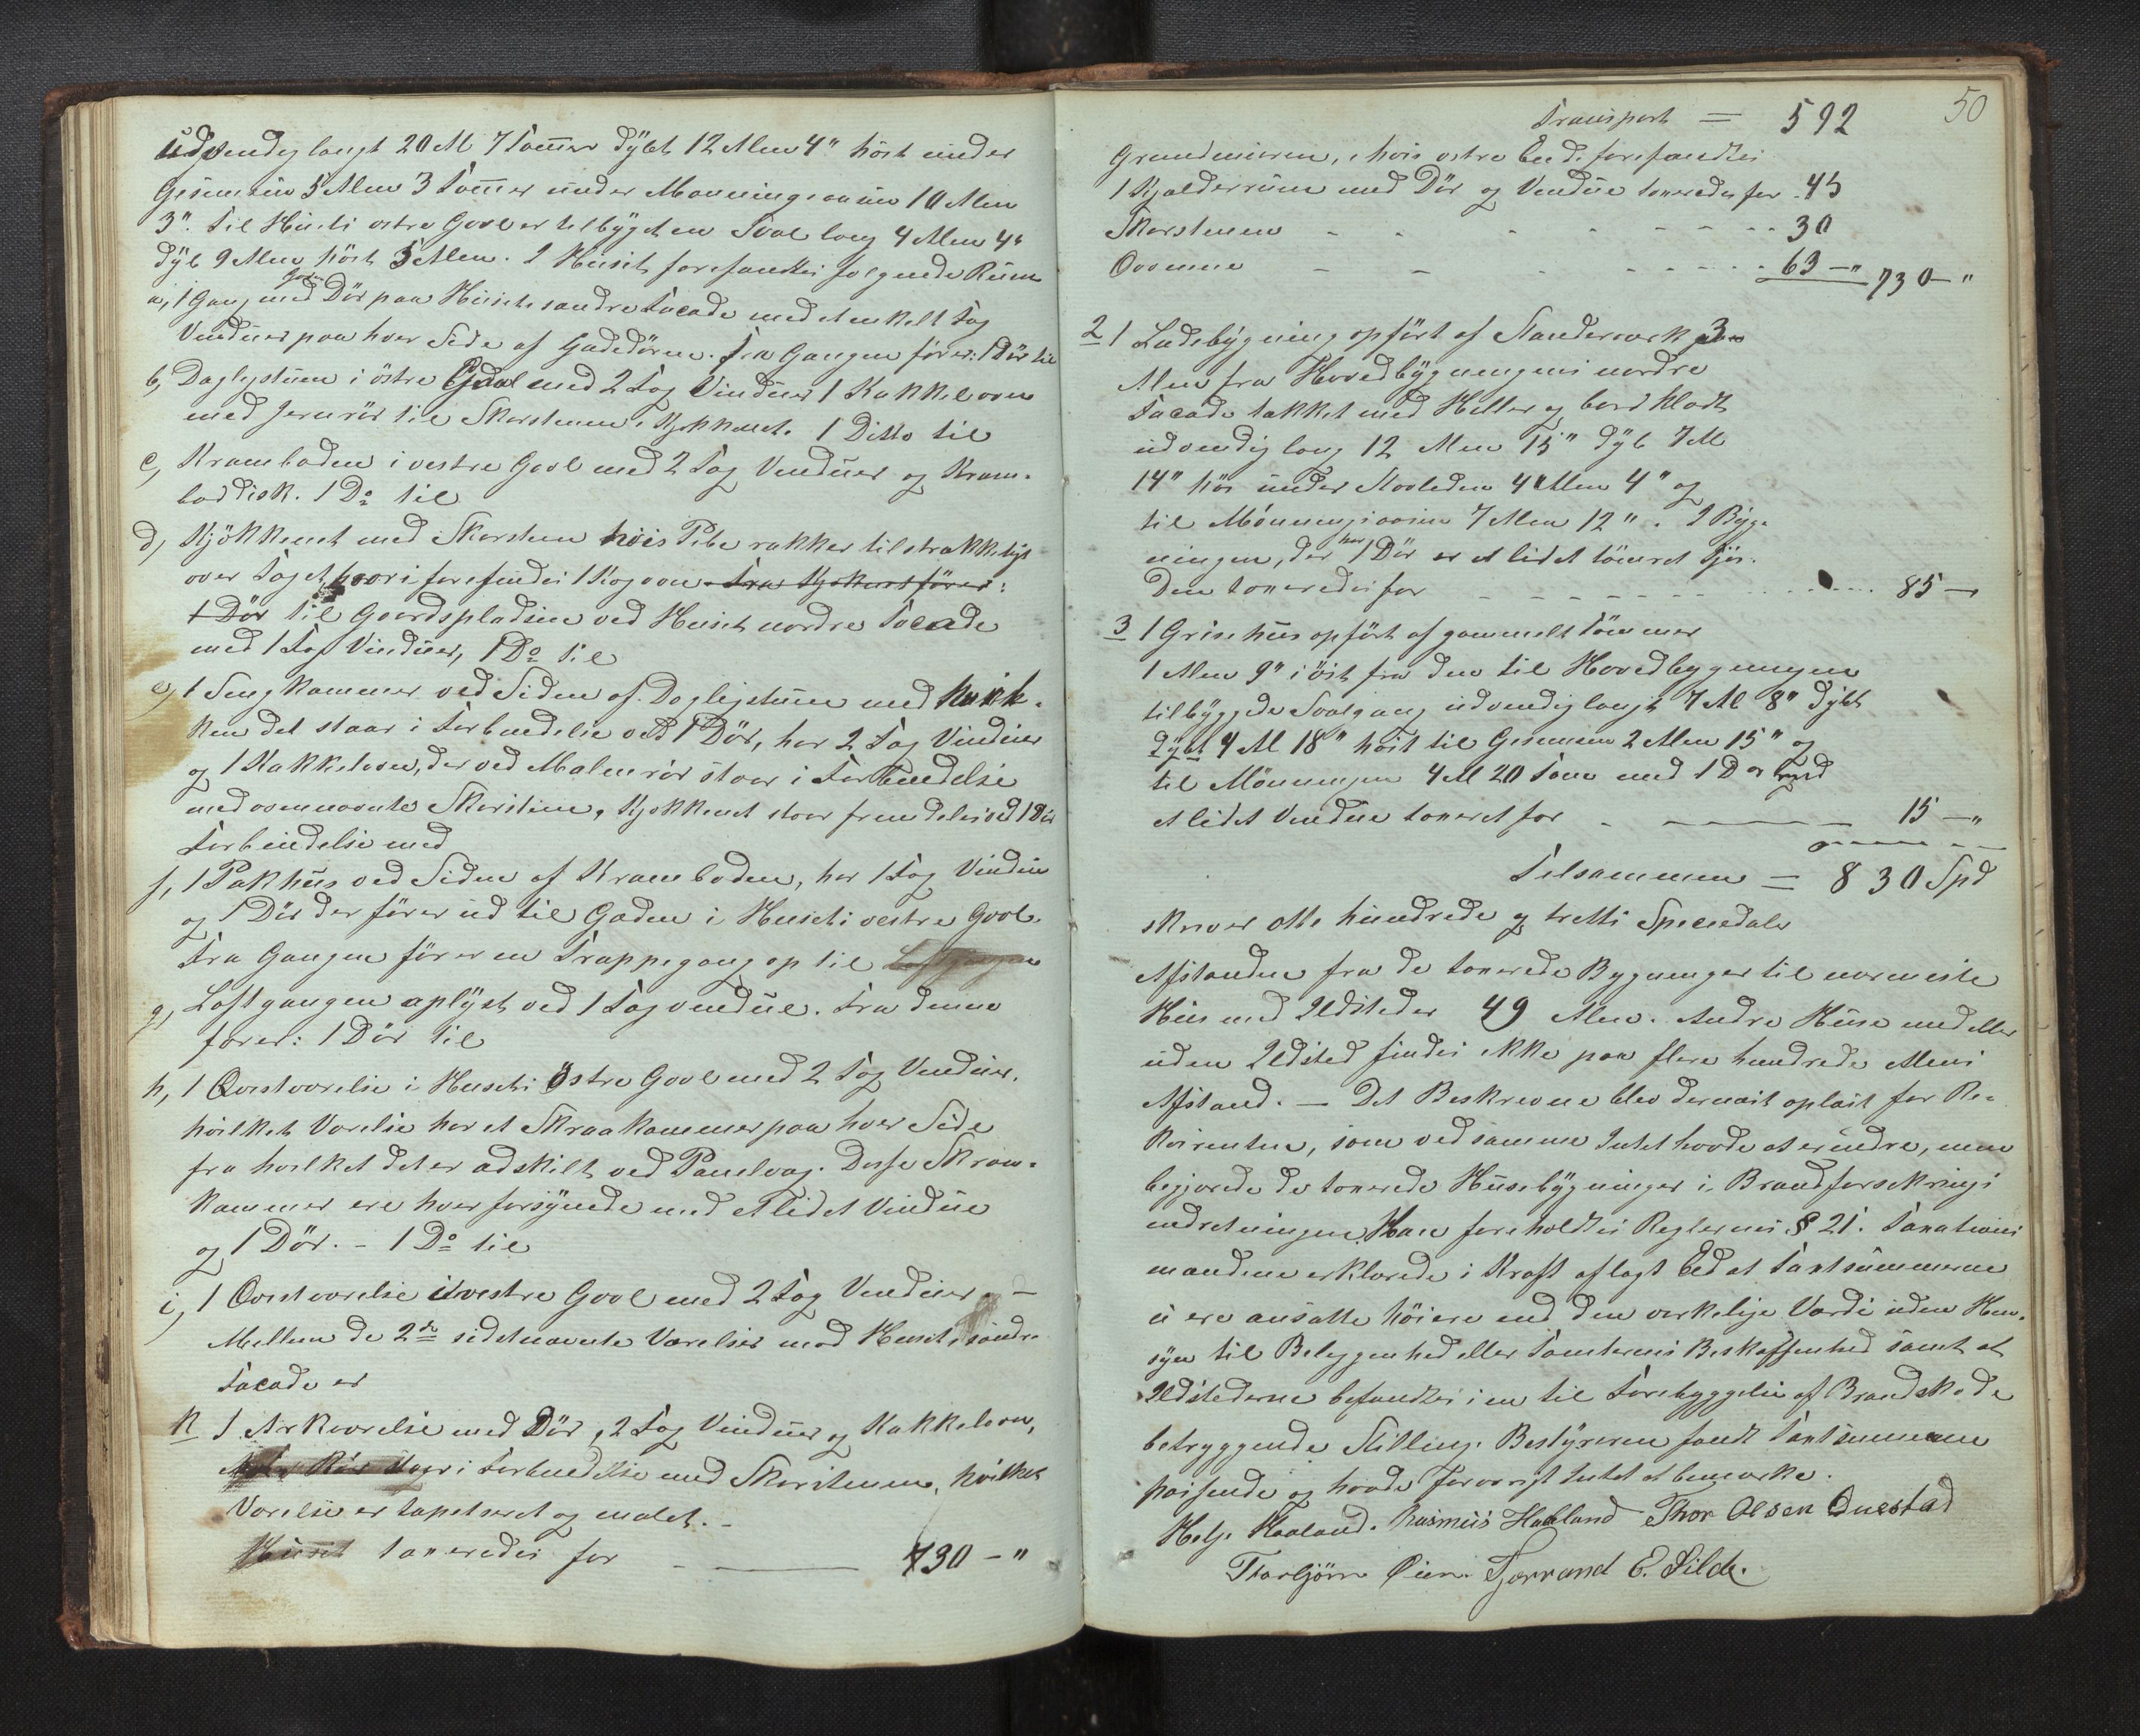 udvendig langt 20 Al 7 Tommer dybt 12 Alen 4" höit under
Gesemsen 5 Alen 3 Tommer under Mønningsaasen 10 Alen
3". Til Husets østre Gavl er tilbygget en Sval lang 4 Alen 4"
dyb 9 Alen höit 3 Alen. I Huset forefandtes følgende Rum
a, 1 Gang med Gade Dör paa Husets søndre Facade med et enkelt Fag
Vinduer paa hver Side af Gadedören. Fra Gangen fører: 1 Dör til
b, Dagligstuen i östre Gavl med 2 Fag Vinduer 1 Kakkelovn
med Jernrör til Skorstenen i Kjøkkenet. 1 Ditto til
c, Kramboden i vestre Gavl med 2 Fag Vinduer og Kram-
boddisk. 1 Do til
d, Kjökkenet med Skorsten hvis Pibe rækker tilstrækkeligt
over Taget, hvori forefindes 1 Kogeovn Fra Kjøkkenet förer:
1 Dör til Gaardspladsen ved Husets nordre Facade
med 1 Fag Vinduer, 1 Do til
e, 1 Sengkammer ved Siden af Dagligstuen med hvil-
ken det staar i Forbindelse ved 1 Dör, har 2 Fag Vinduer
og 1 Kakkelovn, der ved Malmrör staar i Forbindelse
med ovennævnte Skorsten, Kjøkkenet staar fremdeles ved 1 Dör
Forbindelse med
f, 1 Pakhus ved Siden af Kramboden, har 1 Fag Vindue
og 1 Dör der förer ud til Gaden i Husets vestre Gavl.
Fra Gangen förer en Trappegang op til Loftgangen
g, Loftgangen oplyst ved 1 Fag vindue. Fra denne
fører: 1 Dör til
h, 1 Qvistværelse i Husets östre Gavl med 2 Fag Vinduer.
hvilket Værelse har et Skraakammer paa hver Side
fra hvilket det er adskilt ved Panelvæg. Disse Skraa-
kammer ere hver forsynede med et lidet Vindue
og 1 Dör. - 1 Do til
i, 1 Qvistværelse i vestre Gavl med 2 Fag Vinduer. -
Mellem de 2de sidstnævnte Værelser mod Husets söndre
Facade er
k 1 Arkværelse med Dör, 2 Fag Vinduer og Kakkelovn,
Rör staar i Forbindelse med Skorstenen, hvilket
Værelse er tapetseret og malet. -
Huset taxeredes for - 730 - "
50
Transport = 592
Grundmuren, i hvis østre Ende forefandtes
1 Kjælderrum med Dör og Vindue taxeredes for 45
Skorstenen - - - - 30
Ovnene - - - - 63 - " 730 - "
2 1 Ladebygning opfört af Standerværk 3
Alen fra Hovedbygningens nordre
Facade takket med Heller og bordklædt
udvendig lang 12 Alen 15" dyb 7 Al
14" höi under Stavleden 4 Alen 4" og
til Mönningsaasen 7 Alen 12". I Byg-
ningen, der har 1 Dör er et lidet tömret Fjös.
Den taxeredes for - - - - 85 -
3 1 Grisehus opfört af gammelt Tömmer
1 Alen 9" i öst fra den til Hovedbygningen
tilbyggede Svalgang udvendig langt 7 Al 8" dybt
dybt 4 Al 18" höit til Gesemsen 2 Alen 15" og
til Mönningen 4 Al 20 Tom med 1 Dør og
et lidet Vindue taxeret for - 15 - "
Tilsammen = 830 Spd
skriver otte hundrede og tretti Speciedaler
Afstanden fra de taxerede Bygninger til nærmeste
Hus med Ildsteder 49 Alen. Andre Huse med eller
uden Ildsted findes ikke paa flere hundrede Alens
Afstand. - Det Beskrevne blev dernæst oplæst for Re-
kvirenten, som ved samme Intet havde at erindre, men
begjærede de taxerede Husebygninger i Brandforsikrings
indretningen. Han foreholdtes Reglernes § 21. Taxations
mændene erklærede i Kraft aflagt Eed at Taxtsummerne
ei ere ansatte höiere end den virkelige Værdi uden Hen-
syn til Beliggenhed eller Tomternes Beskaffenhed samt at
Ildstederne befandtes i en til Forebyggelse af Brandskade
betryggende Stilling. Bestyreren fandt Taxtsummerne
passende og havde forøvrigt Intet at bemærke.
Helge Haaland. Rasmus Haaland Thor Olsen Qvestad
Thorbjörn Øien. Tjerrand E. Filde.